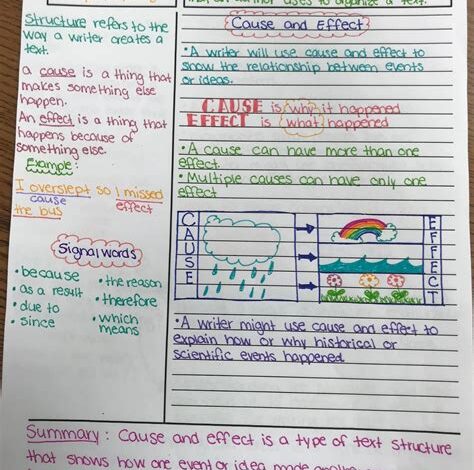 an author uses to organize a text.
Structure refers to the
way a writer creates a
text.
a cause is a thing that
makes something else
happen.
An effect is a thing that
happens because of
something else.
Example:
I overslept so I missed
cause
the bus
effect
Signal words
• because
• as a result
• due to
• since
• the reason
• therefore
• which
means
Cause and Effect
• A writer will use cause and effect to
show the relationship between events
or ideas.
CAUSE is why it happened
EFFECT is what happened
• A cause can have more than one
effect.
• Multiple causes can have only one
effect
CAUSE
EFFECT
• A writer might use cause and effect to
explain how or why historical or
scientific events happened
Summary: Cause and effect is a type of text structure
that shows how one event or idea made another